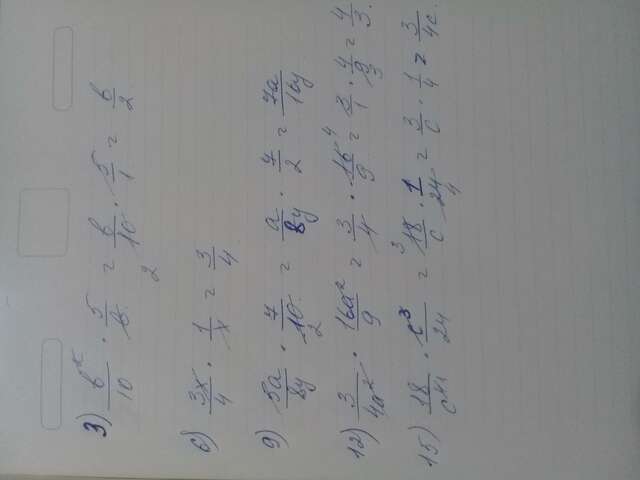 3) b²/10 · 5/b = b/10 · 5/1 = b/2
2
6) 3x/4 · 1/x = 3/4
9) 5a/8y · 7/10 = a/8y · 7/2 = 7a/16y
2
12) 3/4a² · 16a²/9 = 3/4 · 16/9 = 3/1 · 4/9 = 4/3.
15) 18/c⁴ · c³/24 = 18/c · 1/24 = 3/c · 1/4 = 3/4c.